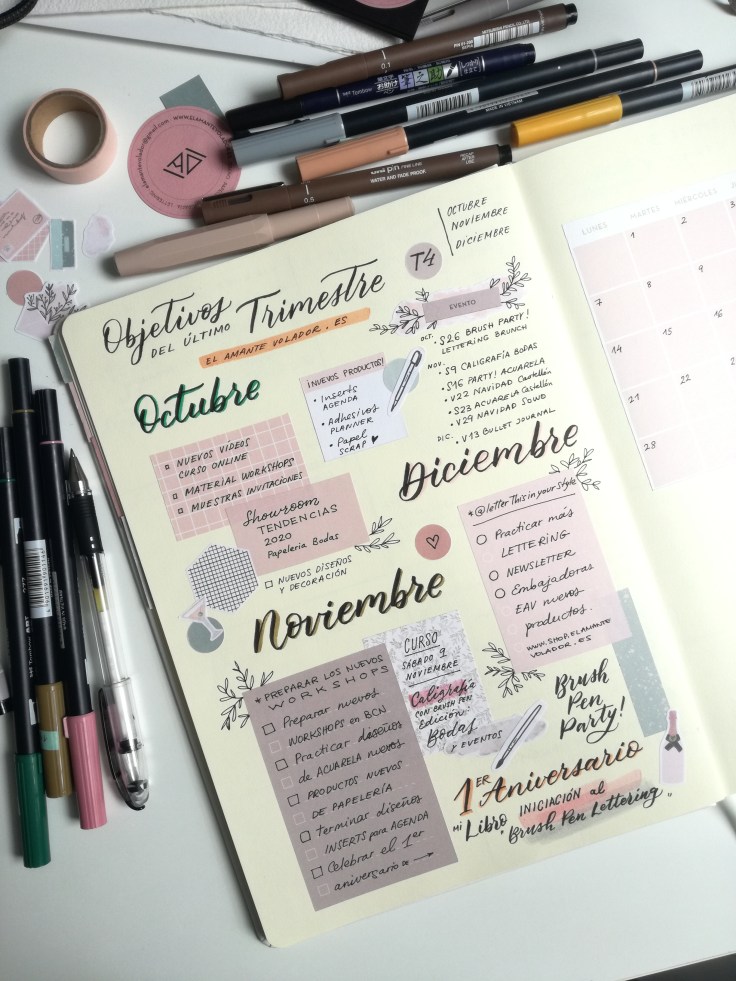 0.1
Tombow
MADE IN VIETNAM
uni pin FINE LINE
WATER AND FADE PROOF
0.5
Objetivos
DEL ÚLTIMO Trimestre
EL AMANTE VOLADOR . ES
T4
OCTUBRE
NOVIEMBRE
DICIEMBRE
EVENTO
OCT. • S26 BRUSH PARTY!
LETTERING BRUNCH
NOV. • S9 CALIGRAFÍA BODAS
• S16 PARTY! ACUARELA
• V22 NAVIDAD Castellón
• S23 ACUARELA Castellón
• V29 NAVIDAD SOWO
DIC. • V13 BULLET JOURNAL
Octubre
¡NUEVOS PRODUCTOS!
• Inserts
AGENDA
• Adhesivos
PLANNER
• Papel
SCRAP
NUEVOS VÍDEOS
CURSO ONLINE
MATERIAL WORKSHOPS
MUESTRAS INVITACIONES
Showroom
TENDENCIAS
2020
Papelería Bodas
NUEVOS DISEÑOS
Y DECORACIÓN
Diciembre
*@letterThisinyourStyle
Practicar más
LETTERING
NEWSLETTER
Embajadoras
EAV nuevos
productos.
WWW.SHOP.ELAMANTE
VOLADOR.ES
Noviembre
* PREPARAR LOS NUEVOS
WORKSHOPS
Preparar nuevos
WORKSHOPS en BCN
Practicar diseños
de ACUARELA nuevos
PRODUCTOS NUEVOS
DE PAPELERÍA
terminar diseños
INSERTS para AGENDA
Celebrar el 1er
aniversario de
CURSO
SÁBADO 9
NOVIEMBRE
Caligrafía
CON BRUSH PEN
Edición:
Bodas
Y EVENTOS
Brush
Pen
Party!
1ER Aniversario
MI Libro INICIACIÓN al
"Brush Pen Lettering"
LUNES MARTES MIÉRCOLES
1 2 3
7 8 9
14 15 16
21 22
28